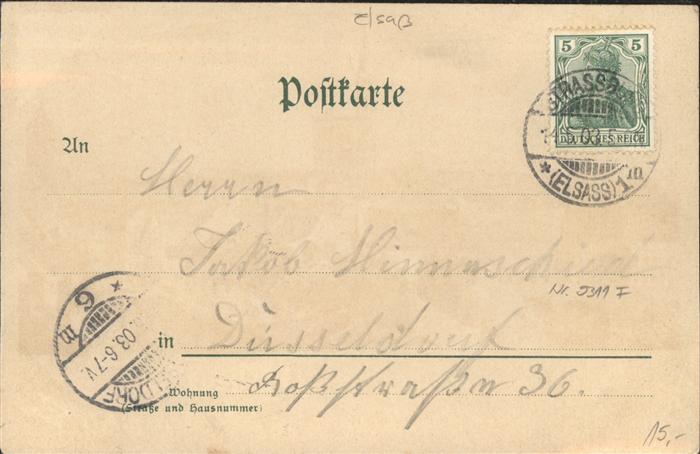 Elsaß
5 5
DEUTSCHES REICH
STRASSB
03
*(ELSASS)1 m
Postkarte
An
Herrn
Jakob
Nr. 9311 I
in Düsseldorf
Roßstraße 36.
Wohnung
(Straße und Hausnummer)
* 6 m
03. 6-7 V.
LDORF
15,-